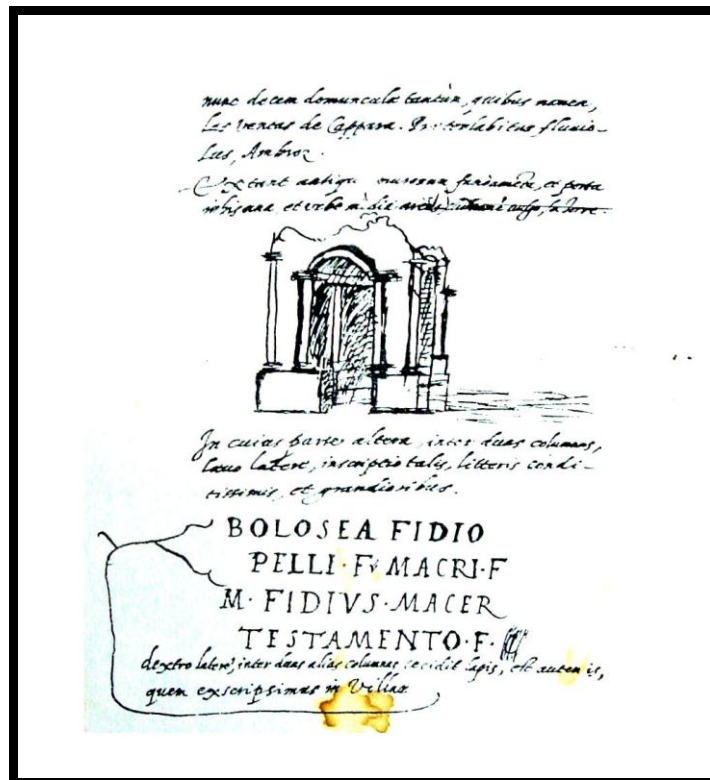 nunc decem domunculæ tantùm, quibus nomen,
Las Ventas de Cappara. Præterlabitur fluvio-
lus, Ambroz.
Extant antiqui murorum fundamēta, et porta
et urbe
In cuius parte altera, inter duas columnas,
læuo latere, inscriptio talis, litteris condi-
tissimis, et grandioribus.
BOLOSEA FIDIO
PELLI·F MACRI·F
M·FIDIVS·MACER
TESTAMENTO·F·
dextro latere, inter duas alias columnas cecidit lapis, est autem is,
quem exscripsimus in Villar